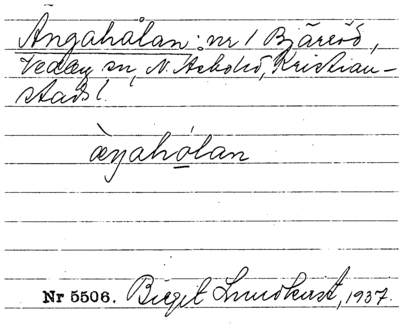 Ängahålan: nr 1 Bjäreröd,
Vedby sn, N. Åsbo hd, Kristian-
stads l.
àŋahólan
Nr 5506. Birgit Lundkvist, 1937.